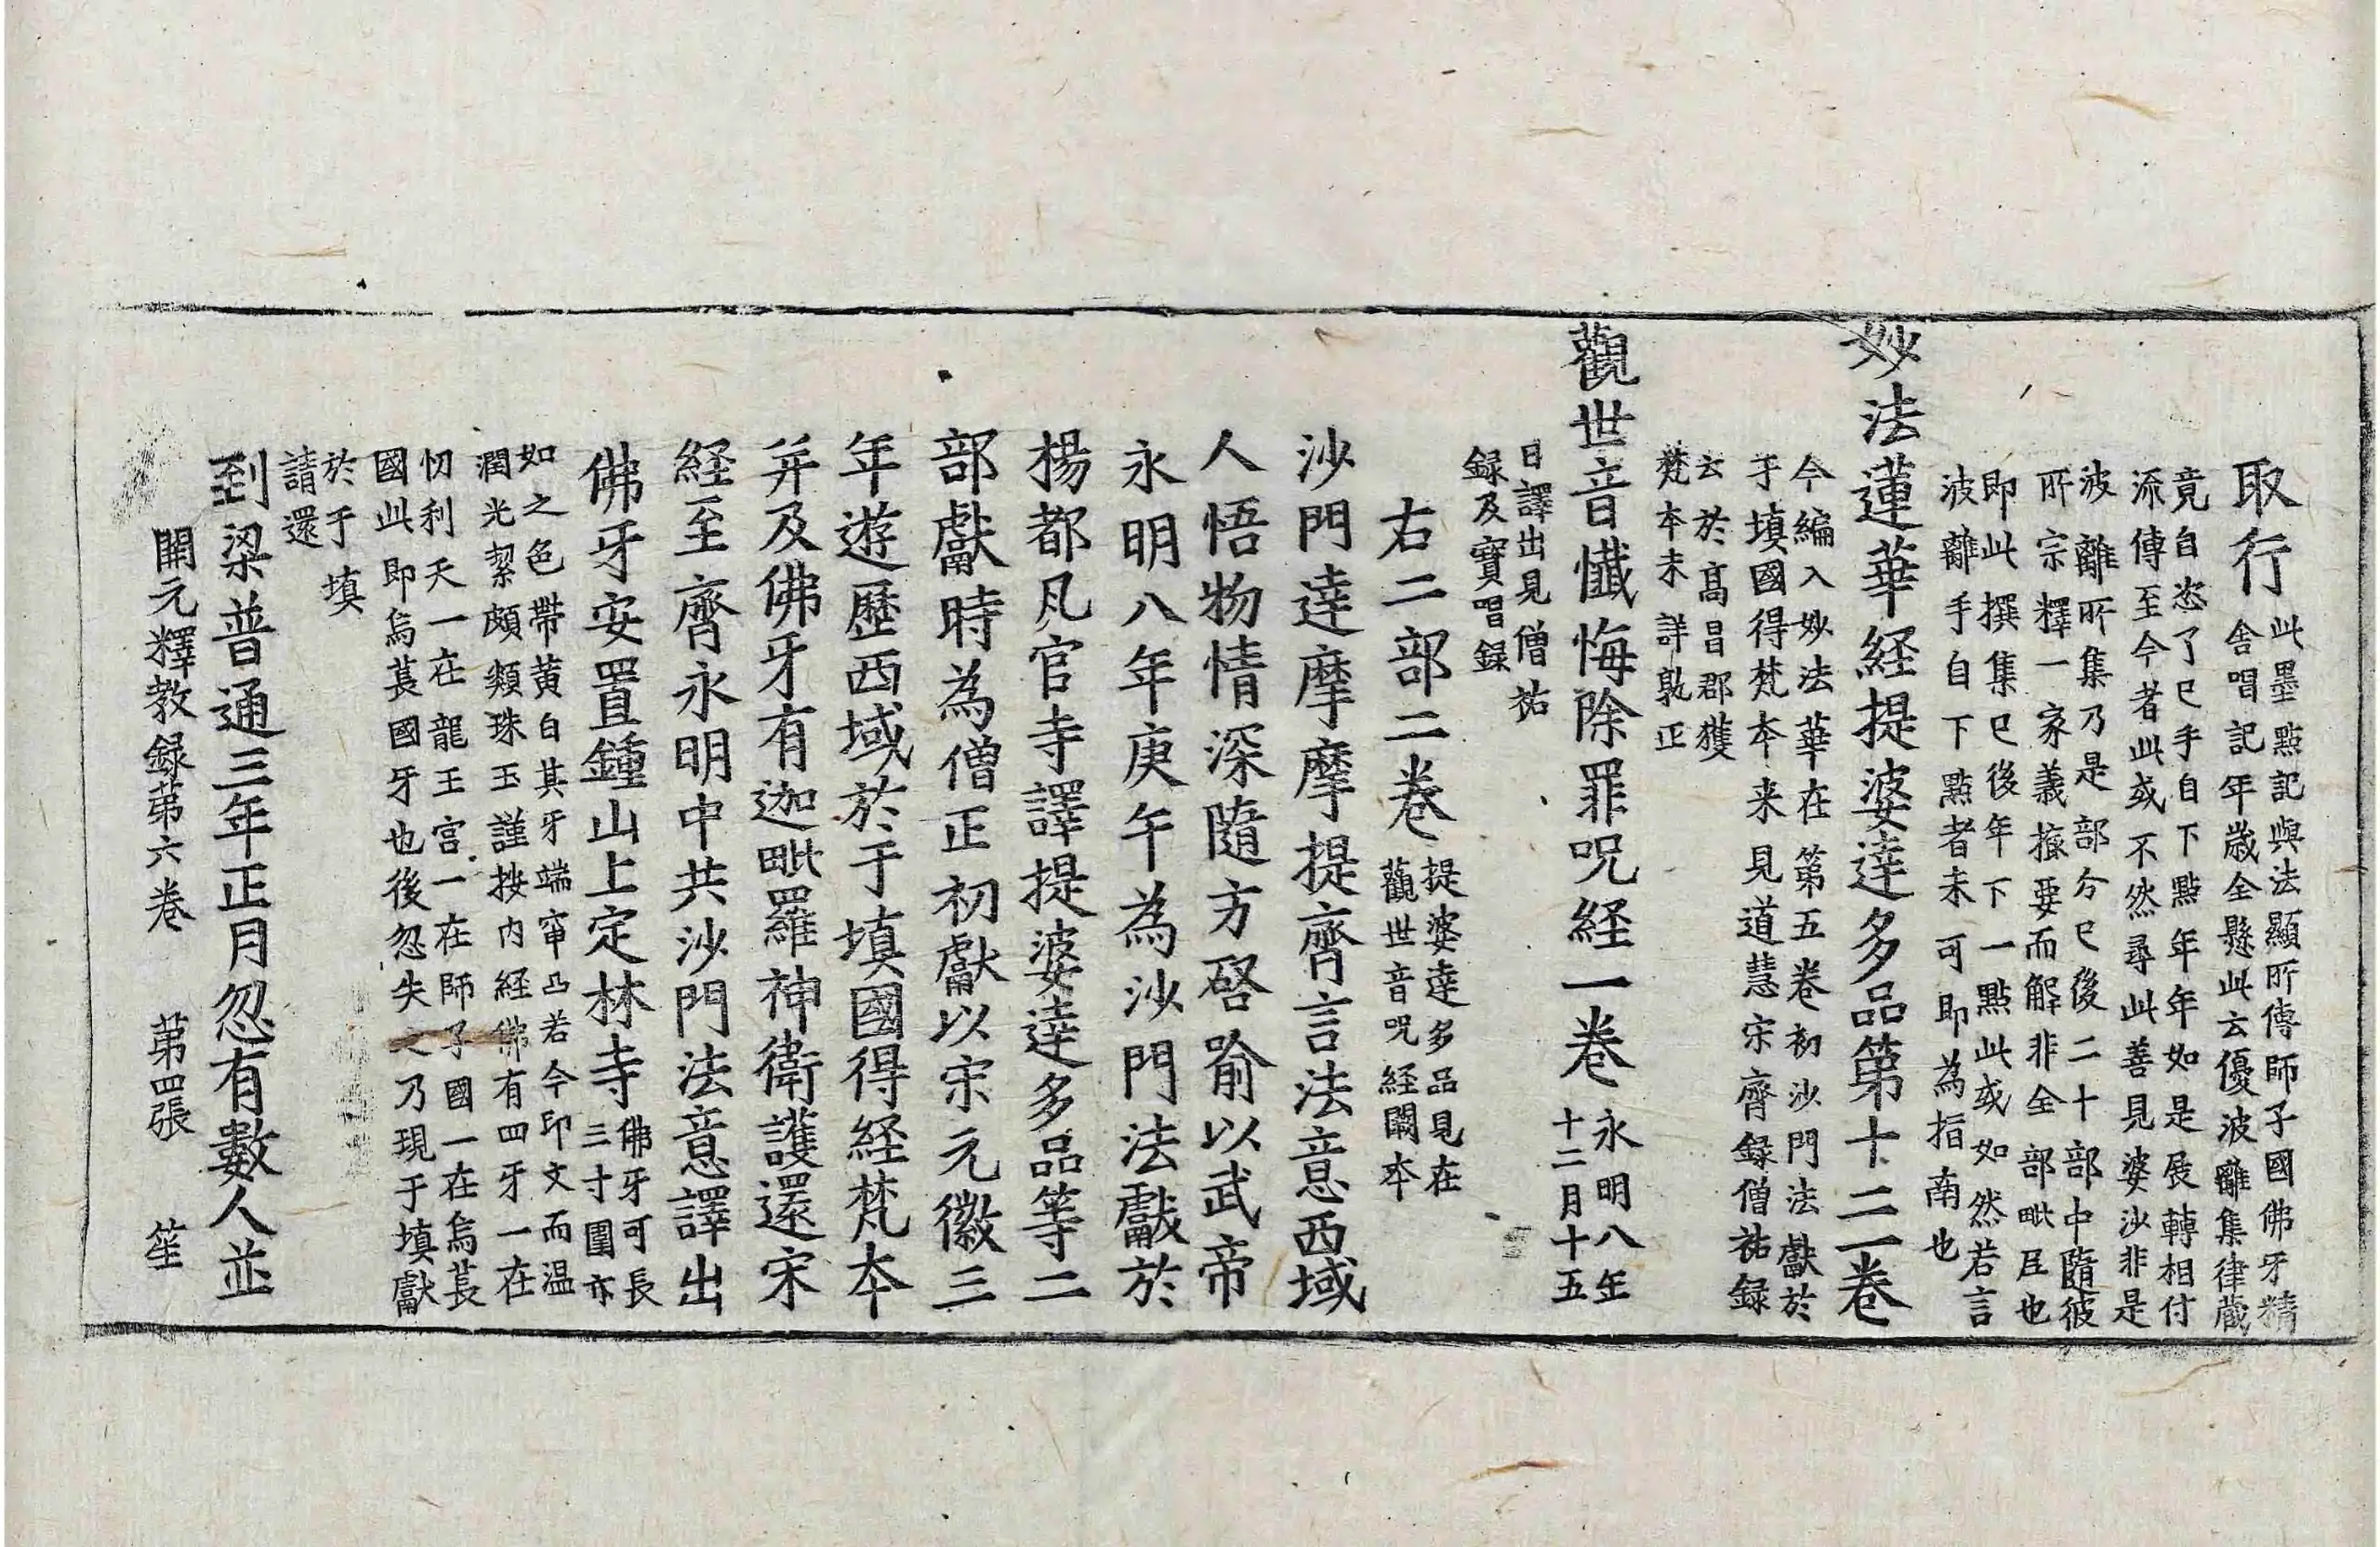 取行此墨點記與法顯所傳師子國佛牙精
舍唱記年歲全懸此云優波離集律藏
竟自恣了已手自下點年年如是展轉相付
流傳至今者此或不然尋此善見婆沙非是
波離所集乃是部分已後二十部中隨彼
所宗釋一家義撮要而解非全部毗尼也
即此撰集已後年下一點此或如然若言
波離手自下點者未可即為指南也
妙法蓮華経提婆達多品第十二一卷
今編入妙法華在第五卷初沙門法獻於
于填國得梵本来見道慧宋齊録僧祐録
云於髙昌郡獲
梵本未詳孰正
觀世音懺悔除罪呪経一卷永明八年
十二月十五
日譯出見僧祐
録及寶唱録
右二部二卷提婆達多品見在
觀世音呪経闕本
沙門達摩摩提齊言法意西域
人悟物情深隨方啓喻以武帝
永明八年庚午為沙門法獻於
楊都凡官寺譯提婆達多品等二
部獻時為僧正初獻以宋元徽三
年遊歷西域於于填國得経梵本
并及佛牙有迦毗羅神衛護還宋
経至齊永明中共沙門法意譯出
佛牙安置鍾山上定林寺佛牙可長
三寸圍亦
如之色帶黄白其牙端窂凸若今印文而温
潤光絜頗類珠玉謹按内経佛有四牙一在
忉利天一在龍王宫一在師子國一在烏萇
國此即烏萇國牙也後忽失之乃現于填獻
於于填
請還
到梁普通三年正月忽有數人並
開元釋教録苐六卷 苐四張 笙